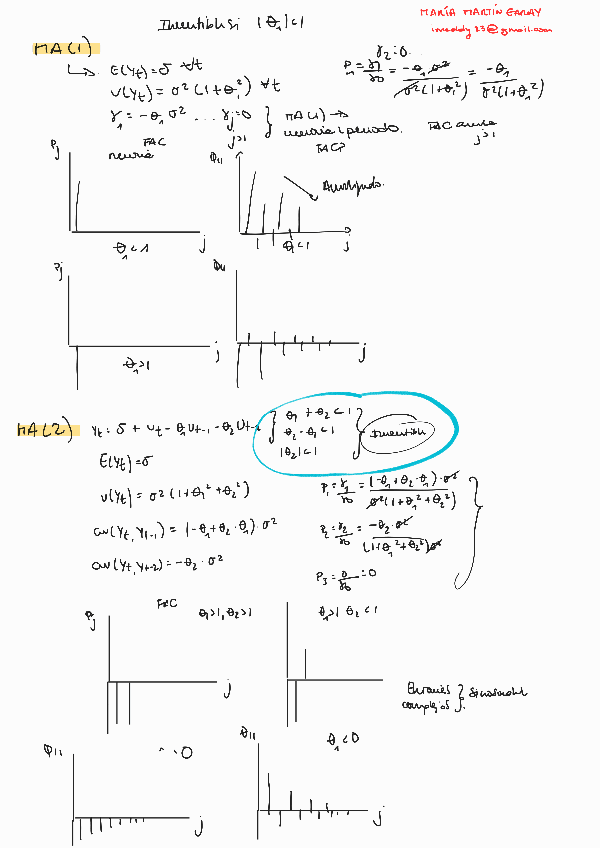 Invertible si |θ₁|<1
MARÍA MARTÍN GARAY
MA(1)
E(Yt)=δ ∀t
V(Yt) = σ²(1+θ₁²) ∀t
γ₁ = -θ₁σ² ... γj=0 j>1
MA(1) →
memoria 1 periodo.
γ₂=0
P₁ = γ₁/γ₀ = -θ₁σ²/σ²(1+θ₁²) = -θ₁/σ²(1+θ₁²)
FAC anula j>1
Pj
FAC
memoria
θ₁<1
j
φ₁₁
FACP
θ₁<1
j
Pj
θ₁>1
j
φ₁₁
j
MA(2)
Yt = δ + Ut - θ₁Ut-1 - θ₂Ut-2
θ₁ + θ₂ < 1
θ₂ - θ₁ < 1
|θ₂| < 1
Invertible
E(Yt)=δ
V(Yt) = σ²(1+θ₁²+θ₂²)
cov(Yt, Yt-1) = (-θ₁+θ₂·θ₁)·σ²
cov(Yt, Yt-2) = -θ₂·σ²
P₁ = γ₁/γ₀ = (-θ₁+θ₂·θ₁)·σ²/σ²(1+θ₁²+θ₂²)
P₂ = γ₂/γ₀ = -θ₂·σ²/(1+θ₁²+θ₂²)σ²
P₃ = 0/γ₀ = 0
Pj
FAC
θ₁>1, θ₂>1
j
θ₁>1 θ₂<1
complejos
φ₁₁
j
φ₁₁
θ₁<0
j